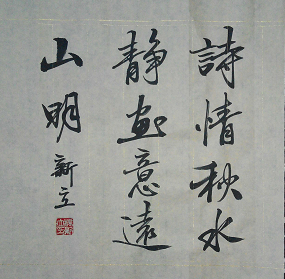 詩情秋水
静画意遠
山明新立